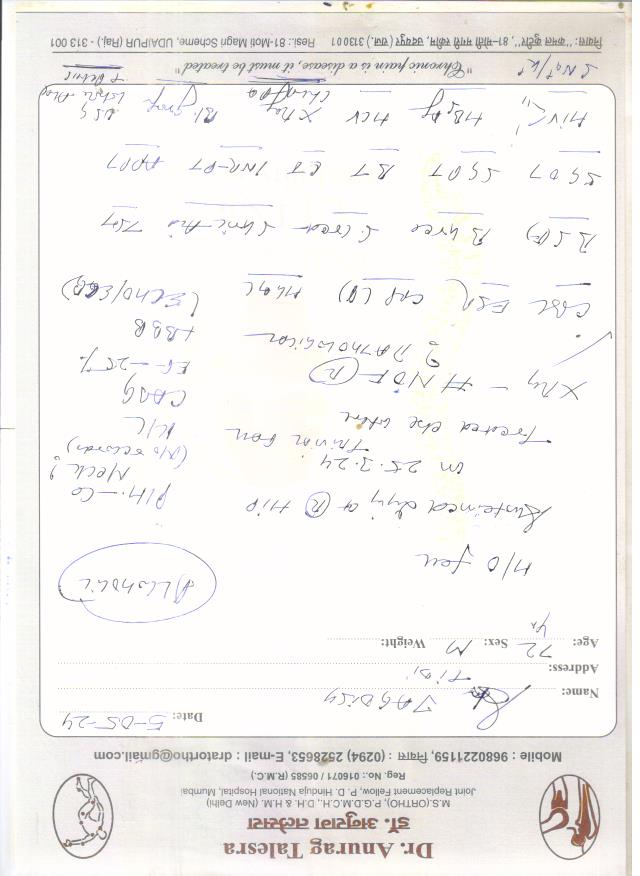 Dr. Anurag Talesra
डॉ. अनुराग तलेसरा
M.S.(ORTHO), P.G.D.M.C.H., D.H. & H.M. (New Delhi)
Joint Replacement Fellow, P. D. Hinduja National Hospital, Mumbai
Reg. No.: 016071 / 06585 (R.M.C.)
Mobile : 9680221159, निवास : (0294) 2528653, E-mail : dratortho@gmail.com
Date: 5-05-24
Name: JAGDISH
Address:
Age: 72 Yr Sex: M Weight:
Alcoholic
H/O fall
Sustained Injury of (R) Hip
on 25.3.24
Trivial fall
Treated else where
P/H - C
(No records)
K/C
CABG
EF - 25%
LBBB
X Ray - # NOF (R)
? Pathological
CBC ESR CRP (Q) HbA1C (ECHO/ECG)
B S (F) B Urea S. Creat S. Uric Acid TSH
SGOT SGPT BT CT INR-PT APTT
HIV HBsAg HCV X Ray Chest PA Bl. group USG
S. Na+/K+
"Chronic pain is a disease, it must be treated"
निवास : "कमल कुटीर", 81-मोती मगरी स्कीम, उदयपुर (राज.) 313001 Resi.: 81-Moti Magri Scheme, UDAIPUR (Raj.) - 313 001